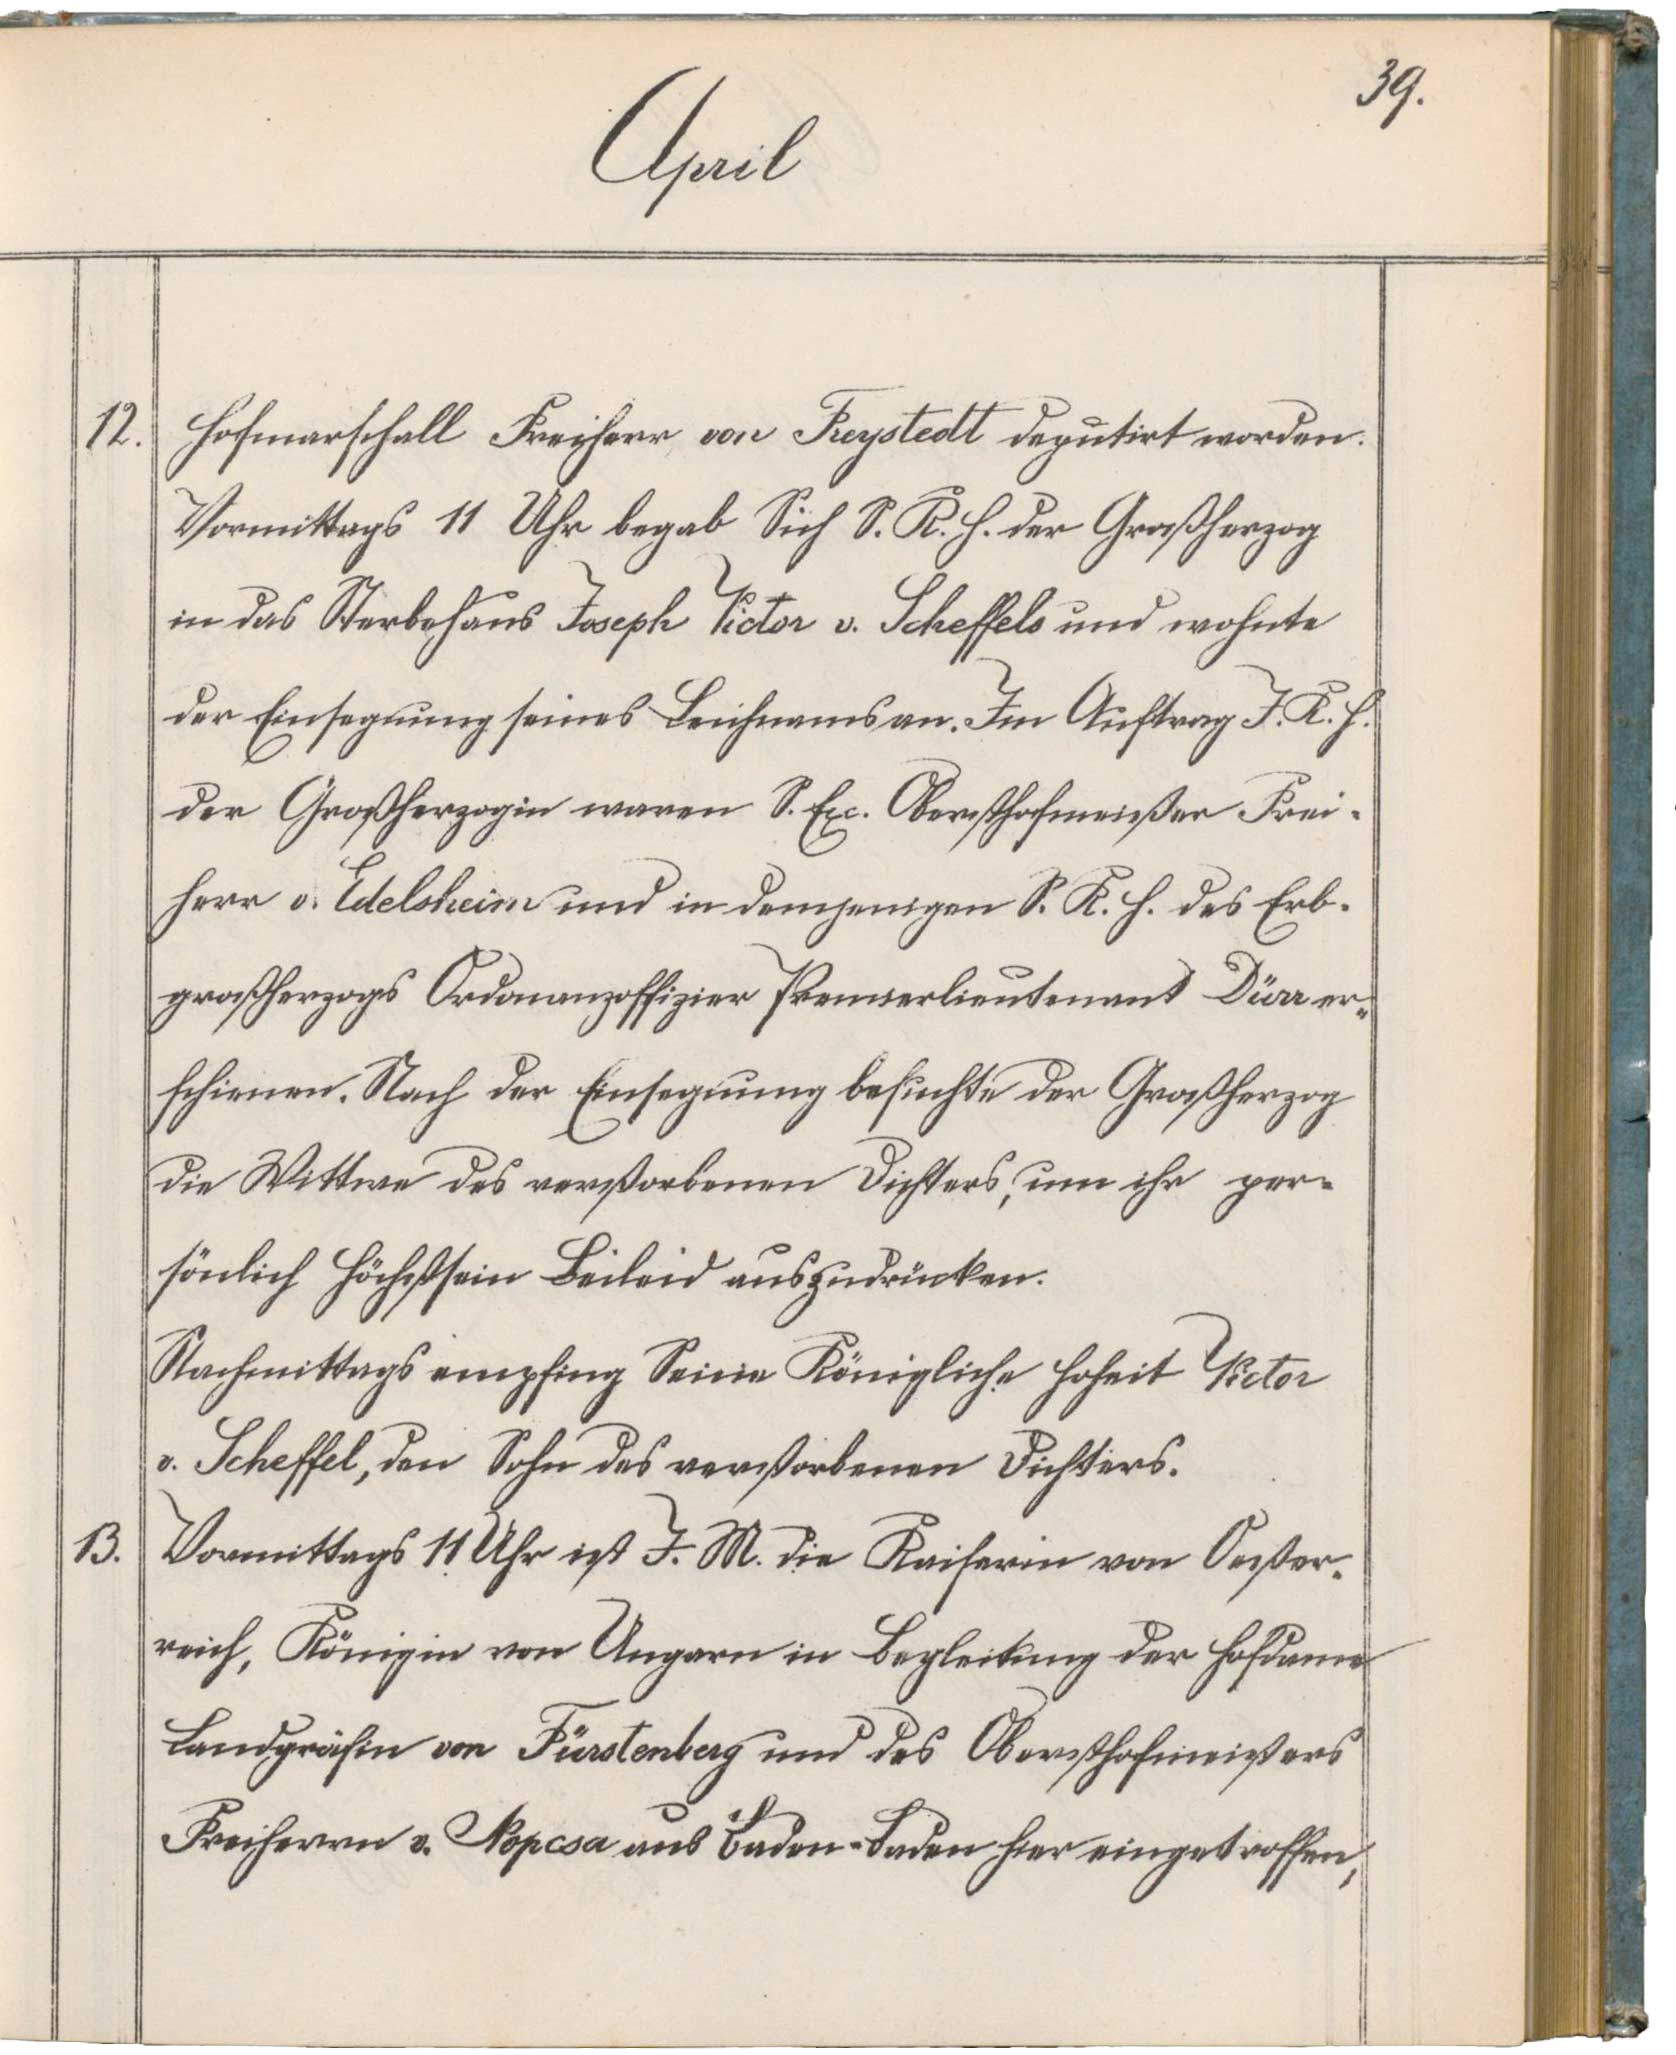 39.
April
12. Hofmarschall Freiherr von Freystedt deputirt worden.
Vormittags 11 Uhr begab Sich S. K. H. der Großherzog
in das Sterbehaus Joseph Victor v. Scheffels und wohnte
der Einsegnung seines Leichnams an. Im Auftrag J. K. H.
der Großherzogin waren S. Exc. Obersthofmeister Frei-
herr v. Edelsheim und in demjenigen S. K. H. des Erb-
großherzogs Ordonanzoffizier Premierlieutenant Dürr er-
schienen. Nach der Einsegnung besuchte der Großherzog
die Wittwe des verstorbenen Dichters, um ihr per-
sönlich Höchstsein Beileid auszudrücken.
Nachmittags empfing Seine Königliche Hoheit Victor
v. Scheffel, den Sohn des verstorbenen Dichters.
13. Vormittags 11 Uhr ist J. M. die Kaiserin von Oester-
reich, Königin von Ungarn in Begleitung der Hofdame
Landgräfin von Fürstenberg und des Obersthofmeisters
Freiherrn v. Nopcsa aus Baden-Baden hier eingetroffen,